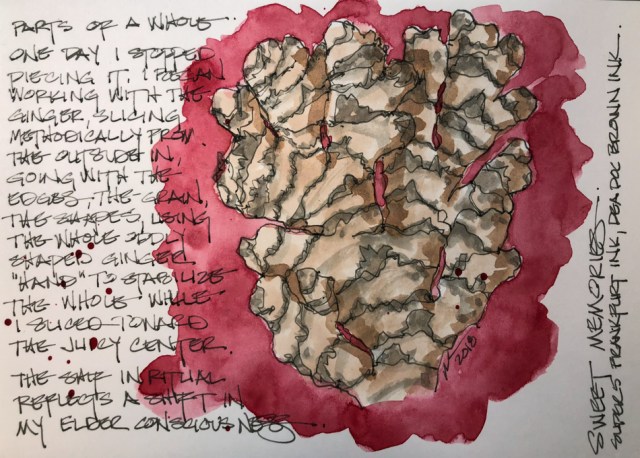 PARTS OF A WHOLE..
ONE DAY I STOPPED
PIECING IT. I BEGAN
WORKING WITH THE
GINGER, SLICING
METHODICALLY FROM
THE OUTSIDE IN,
GOING WITH THE
EDGES, THE GRAIN,
THE SHAPES, USING
THE WHOLE ODDLY
SHAPED GINGER
"HAND" TO STABILIZE
THE WHOLE WHILE
I SLICED TOWARD
THE JUICY CENTER.
THE IN RITUAL
REFLECTS A SHIFT IN
MY ELDER CONSCIOUSNESS...
2018
SWEET MEMORIES...
SUPER5 FRANKFURT INK, DEADOC BROWN INK...